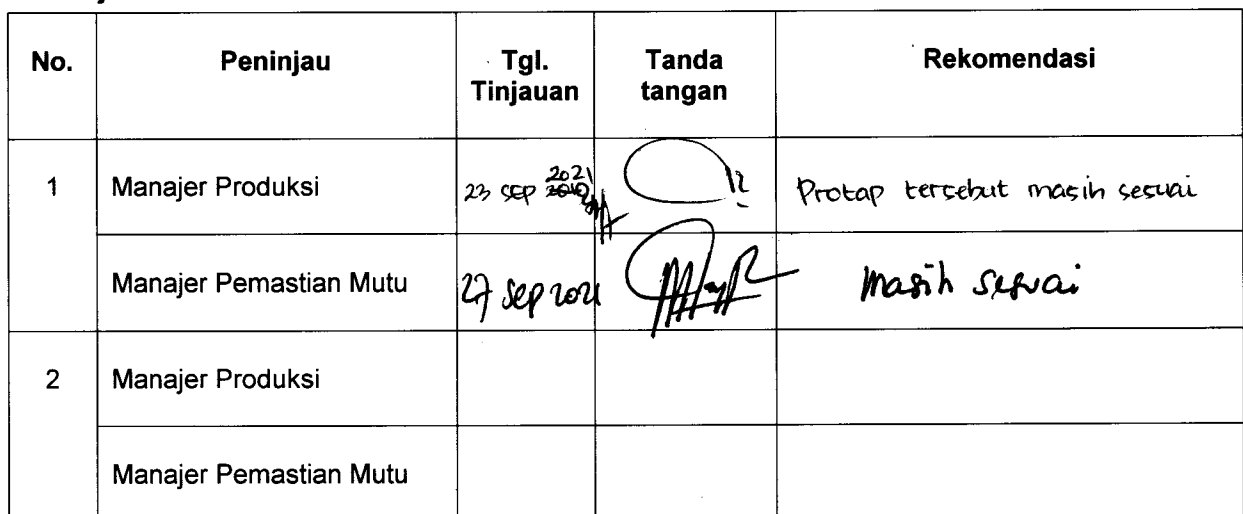 No. Peninjau Tgl. Tinjauan Tanda tangan Rekomendasi
1 Manajer Produksi 23 sep 2021 Protap tersebut masih sesuai
Manajer Pemastian Mutu 27 sep 2021 Masih sesuai
2 Manajer Produksi
Manajer Pemastian Mutu